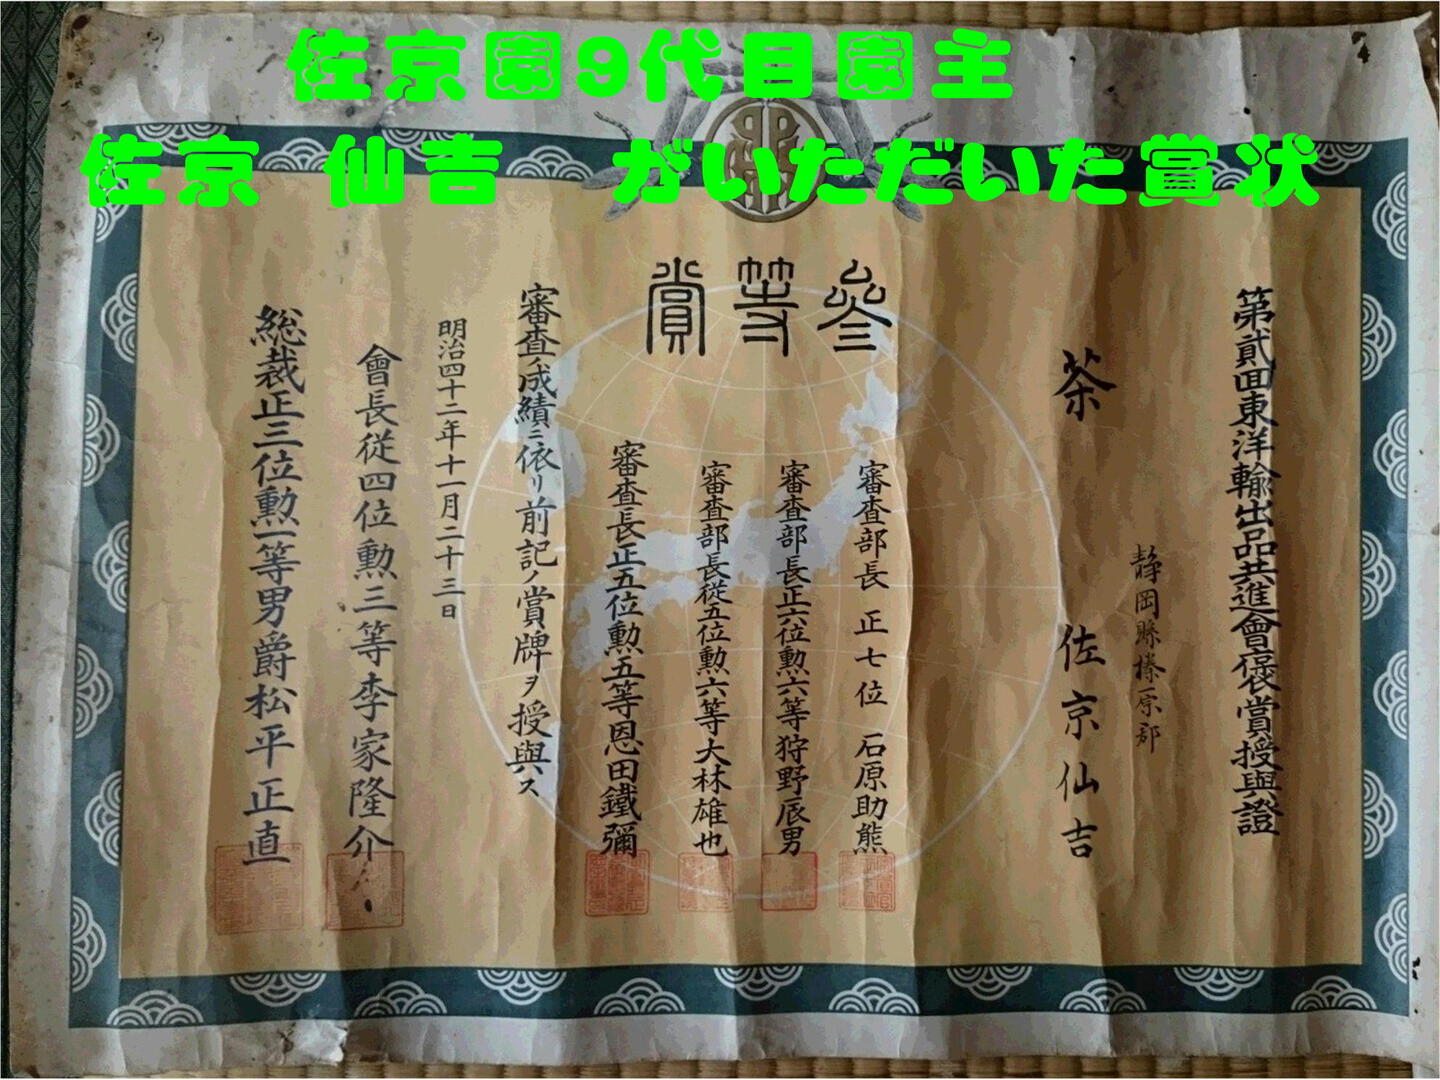 佐京園9代目園主
佐京 仙吉 がいただいた賞状
第貳回東洋輸出品共進會褒賞授與證
静岡縣榛原郡
茶 佐京仙吉
參等賞
審査部長 正七位 石原助熊
審査部長正六位勲六等狩野辰男
審査部長従五位勲六等大林雄也
審査長正五位勲五等恩田鐵彌
審査ノ成績ニ依リ前記ノ賞牌ヲ授與ス
明治四十二年十一月二十三日
會長従四位勲三等李家隆介
総裁正三位勲一等男爵松平正直